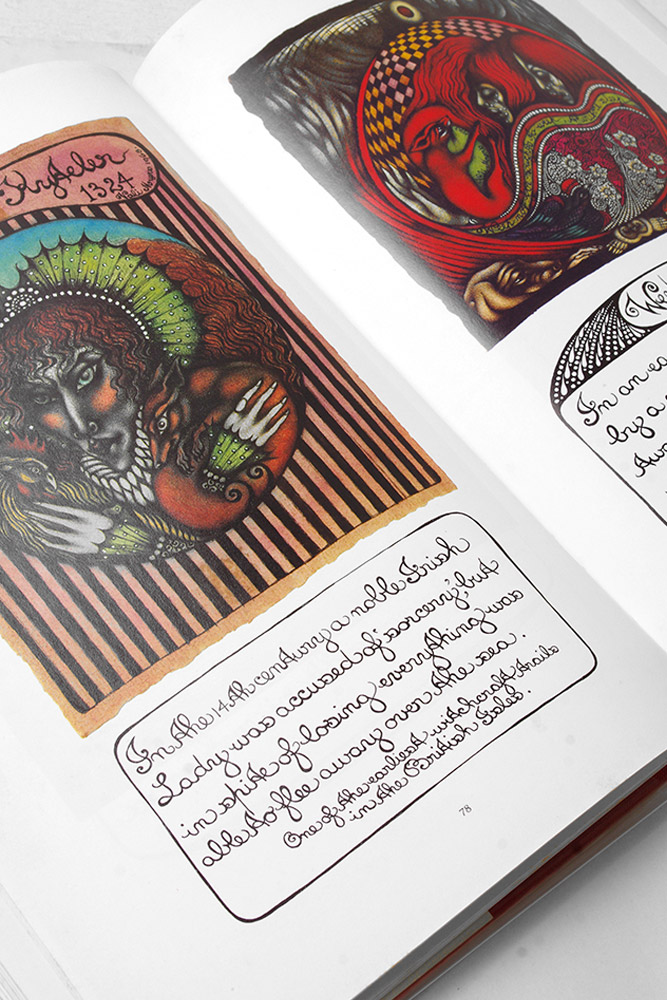 Kyteler
1324
In the 14th century a noble Irish
Lady was accused of 'sorcery', but
in spite of losing everything was
able to flee away over the sea.
One of the earliest witchcraft trails
in the British Isles.
78
In an ea
by a